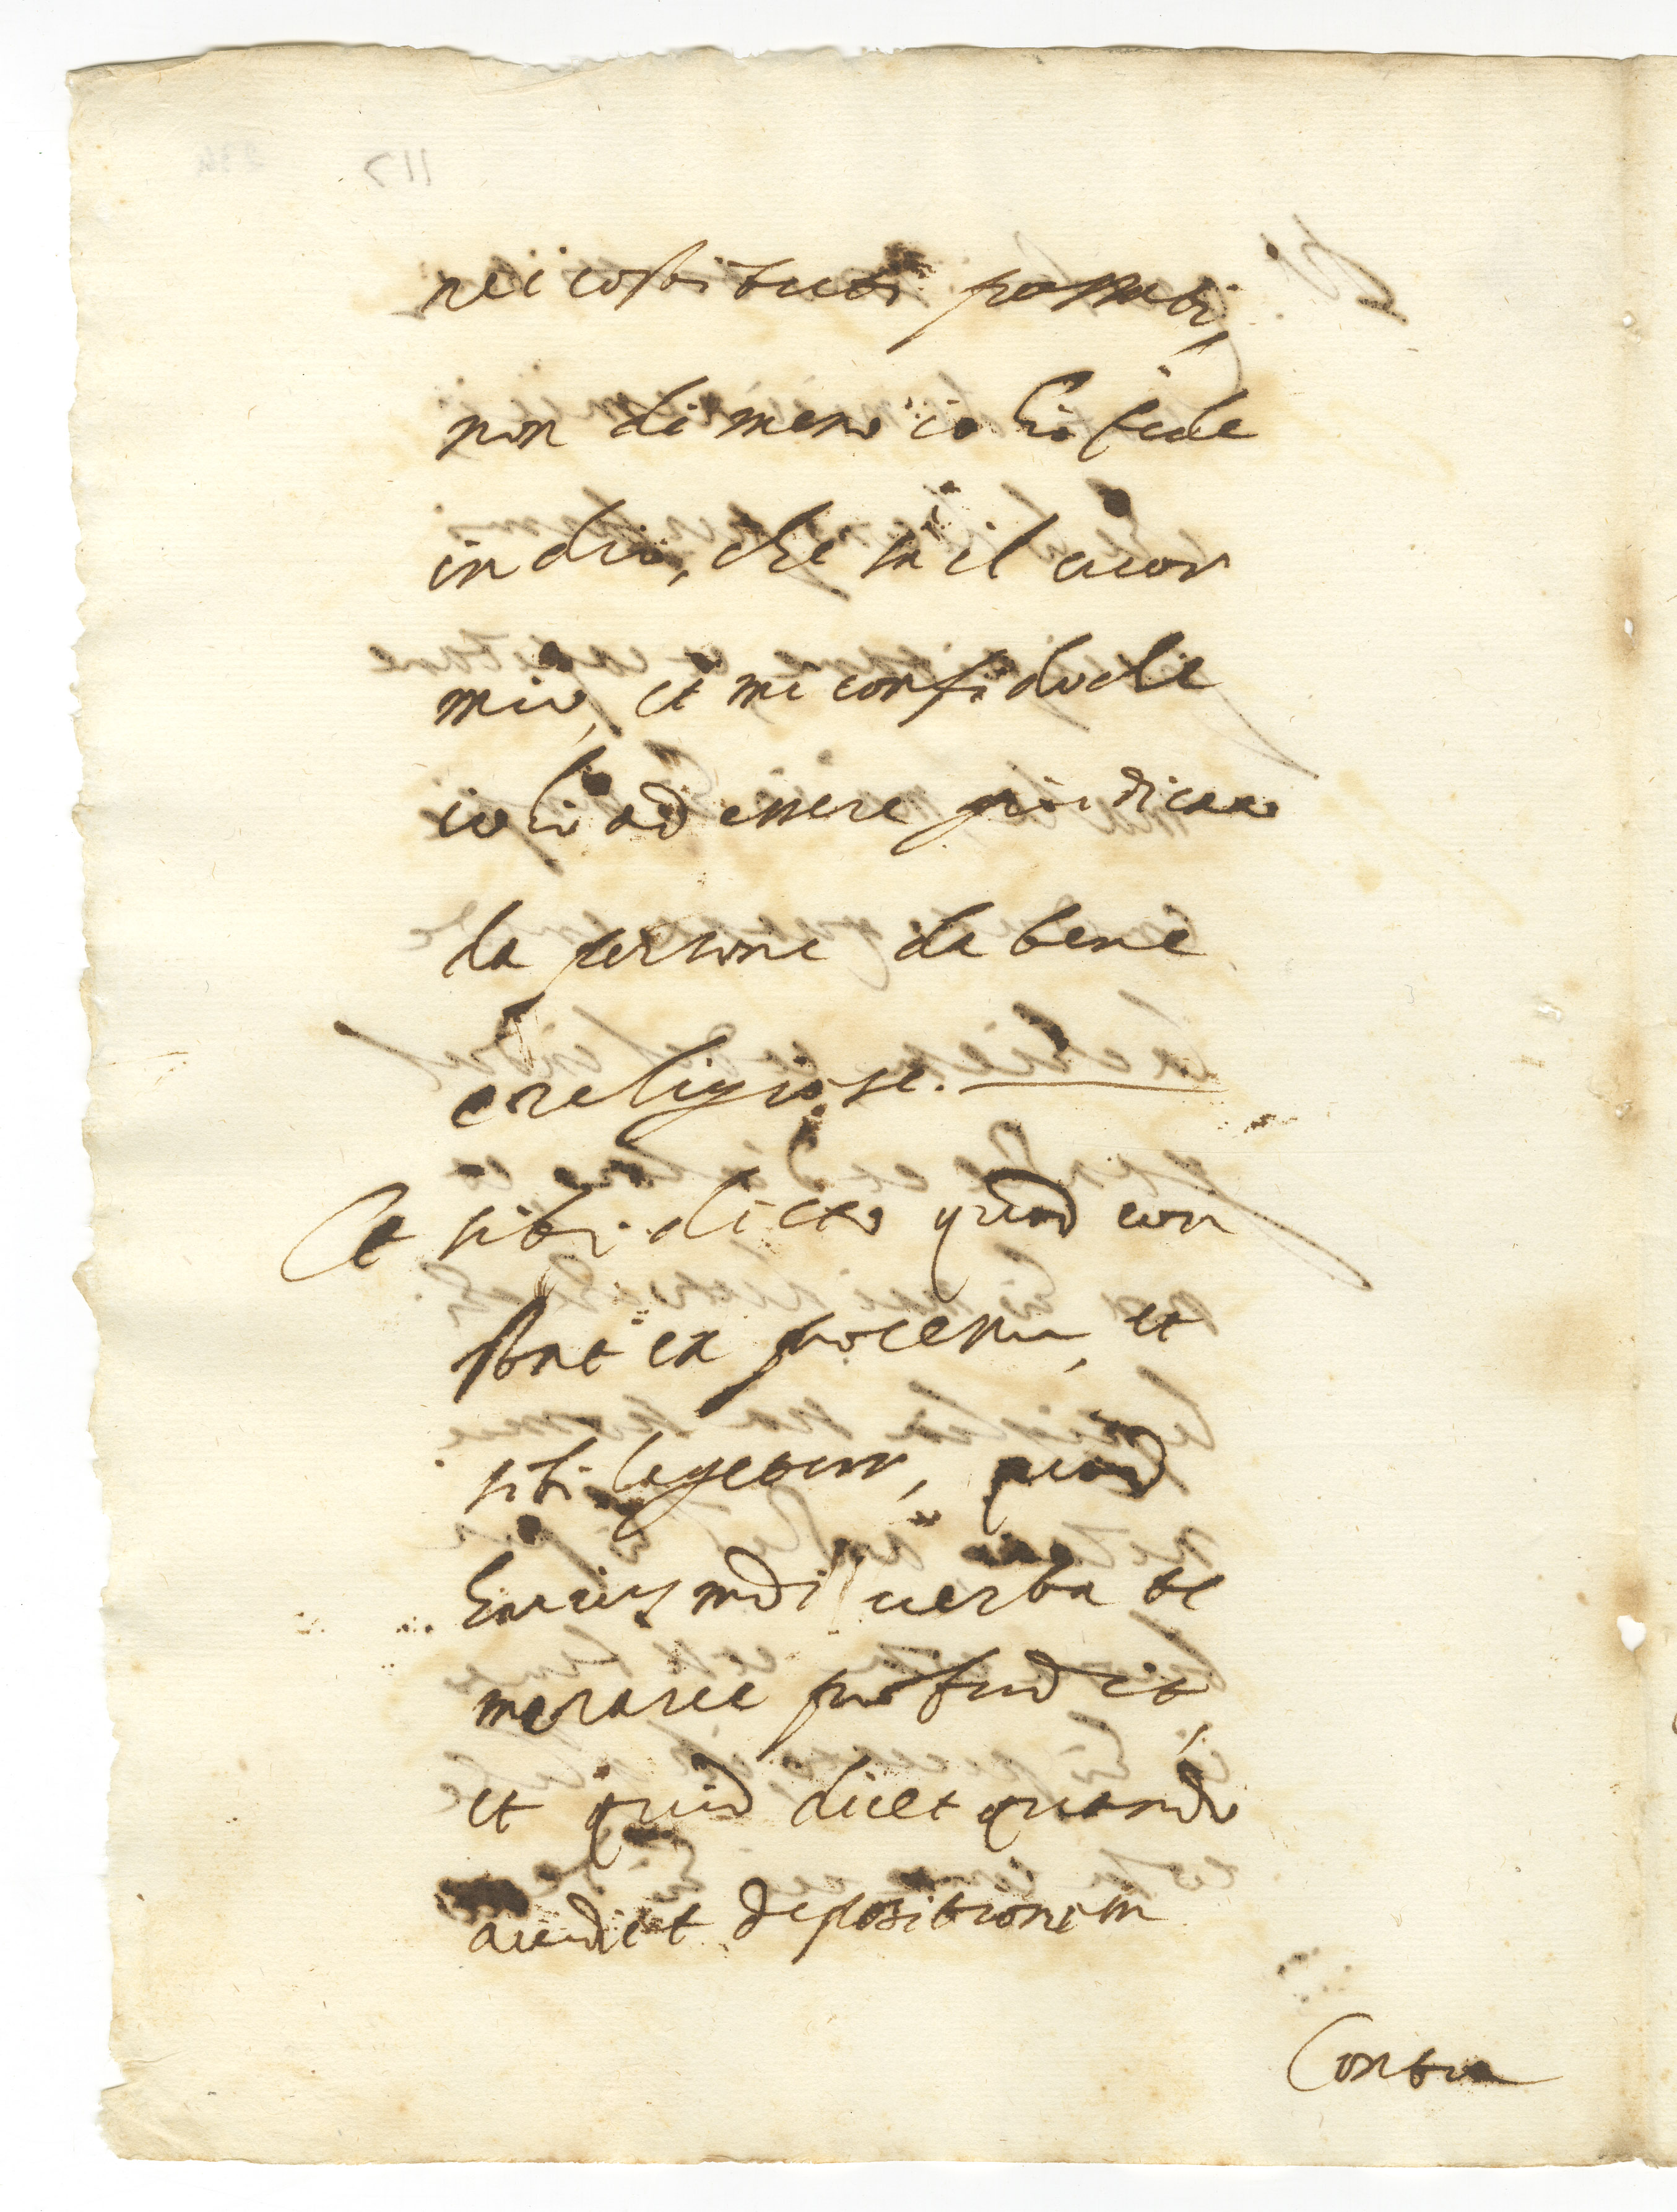 nei costituti passati,
non di meno io hò fede
in dio, che sa il cuor
mio, et mi confido che
io hò ad essere giudicato
da persone da bene
e religiose.
Et sibi dicto quod con
stat ex processu, et
sibi legetur, quod
huiusmodi uerba te
merarie protulit,
et quid dicet quando
audiet depositionem
Contra